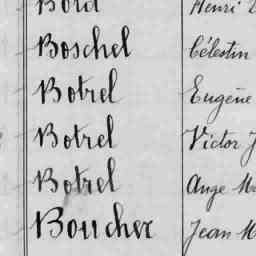 Bord Henri
Boschel Célestin
Botrel Eugène
Botrel Victor J
Botrel Ange Ma
Boucher Jean M